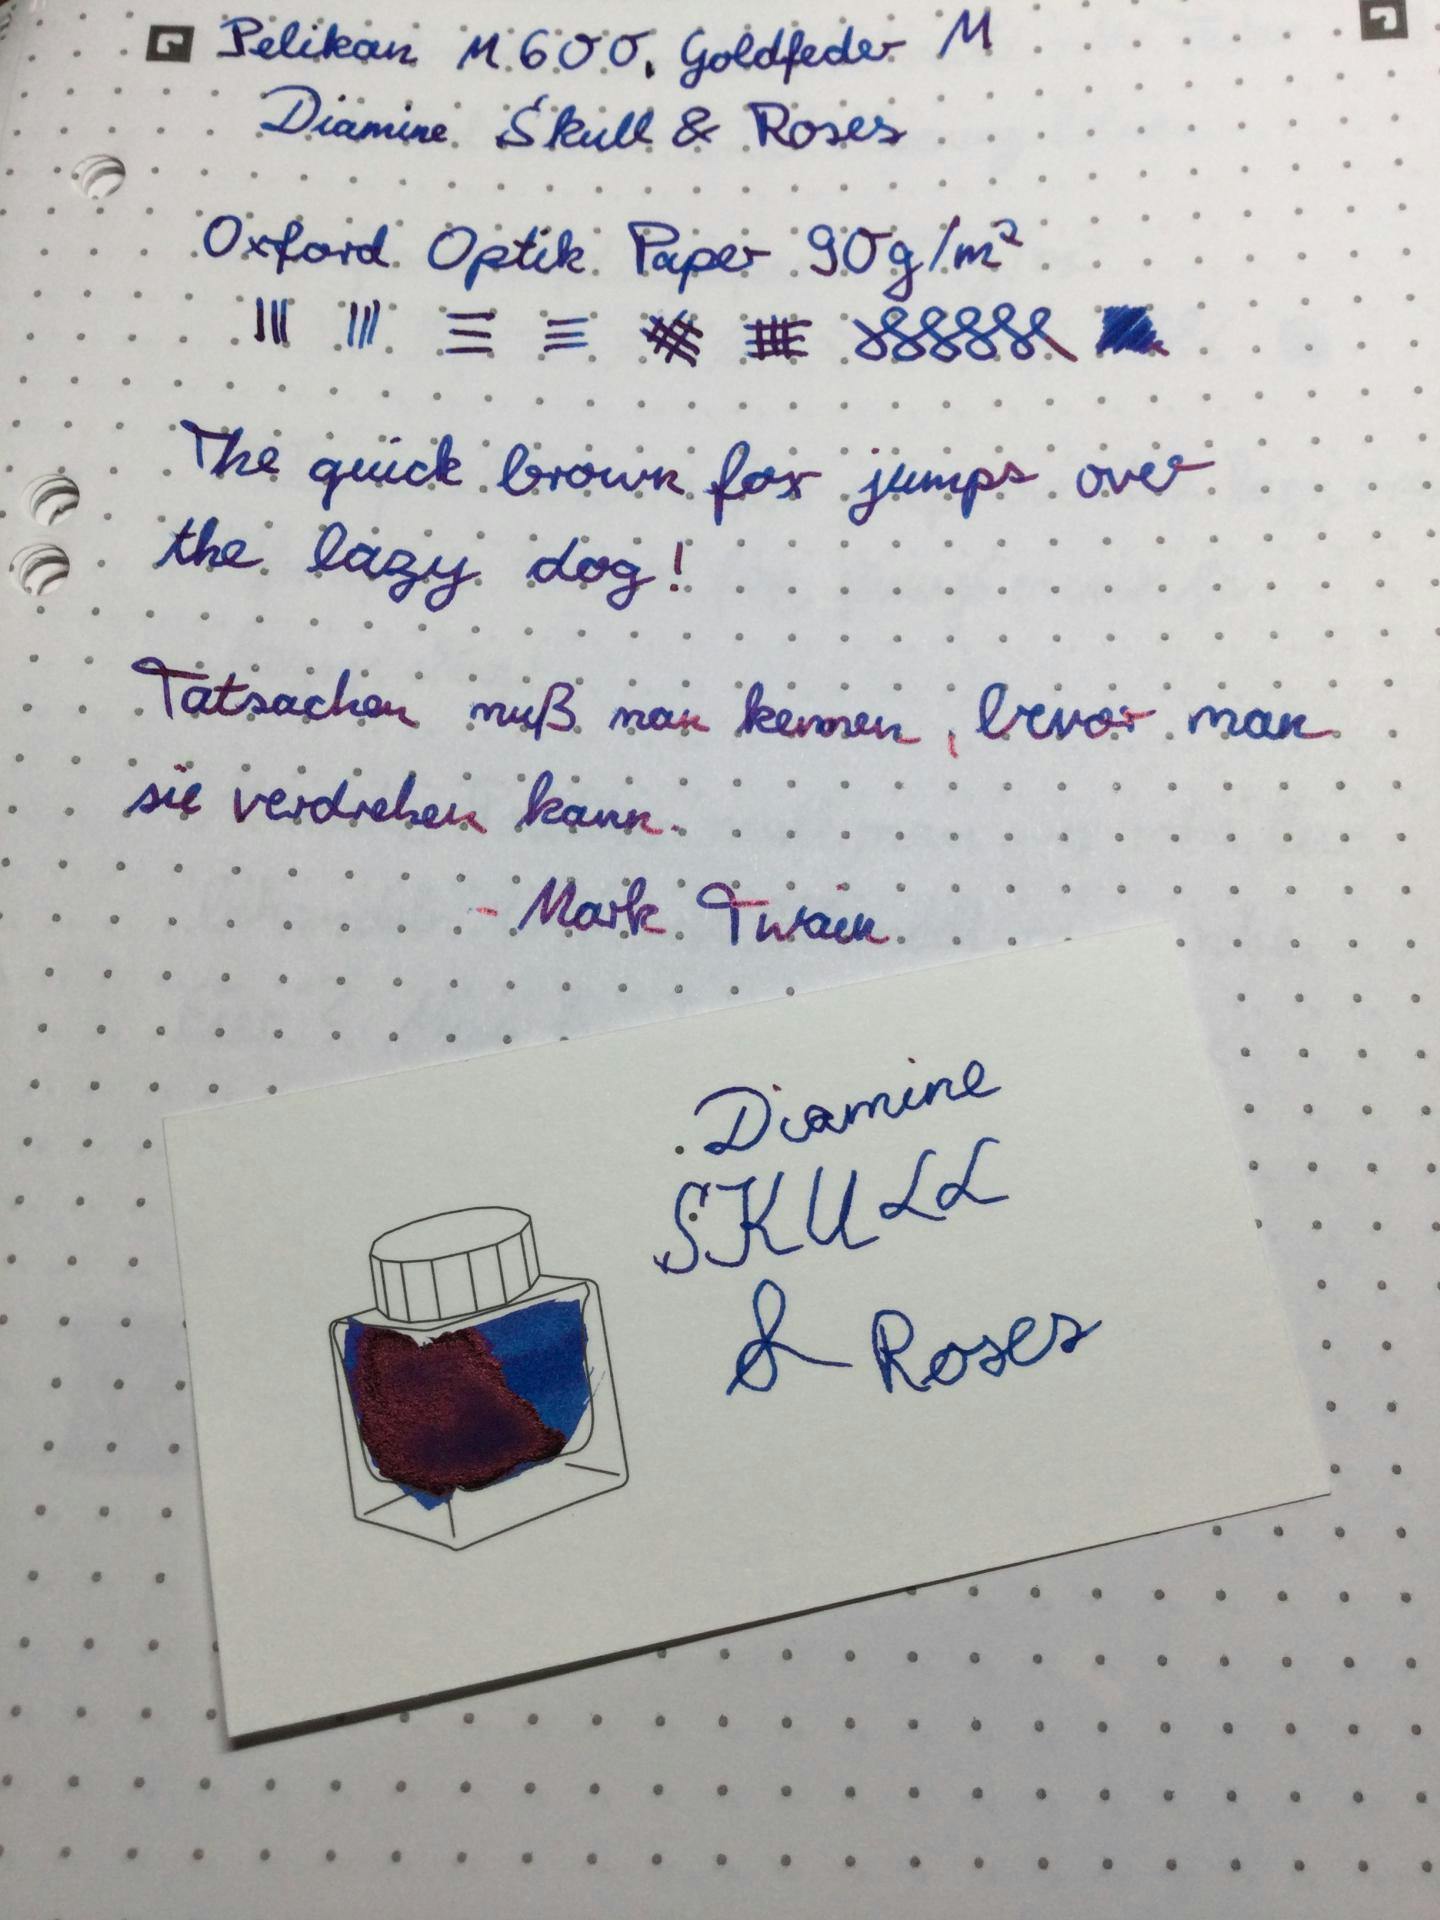 Pelikan M600, Goldfeder M
Diamine Skull & Roses
Oxford Optik Paper 90g/m²
The quick brown fox jumps over
the lazy dog!
Tatsachen muß man kennen, bevor man
sie verdrehen kann.
- Mark Twain
Diamine
SKULL
& Roses